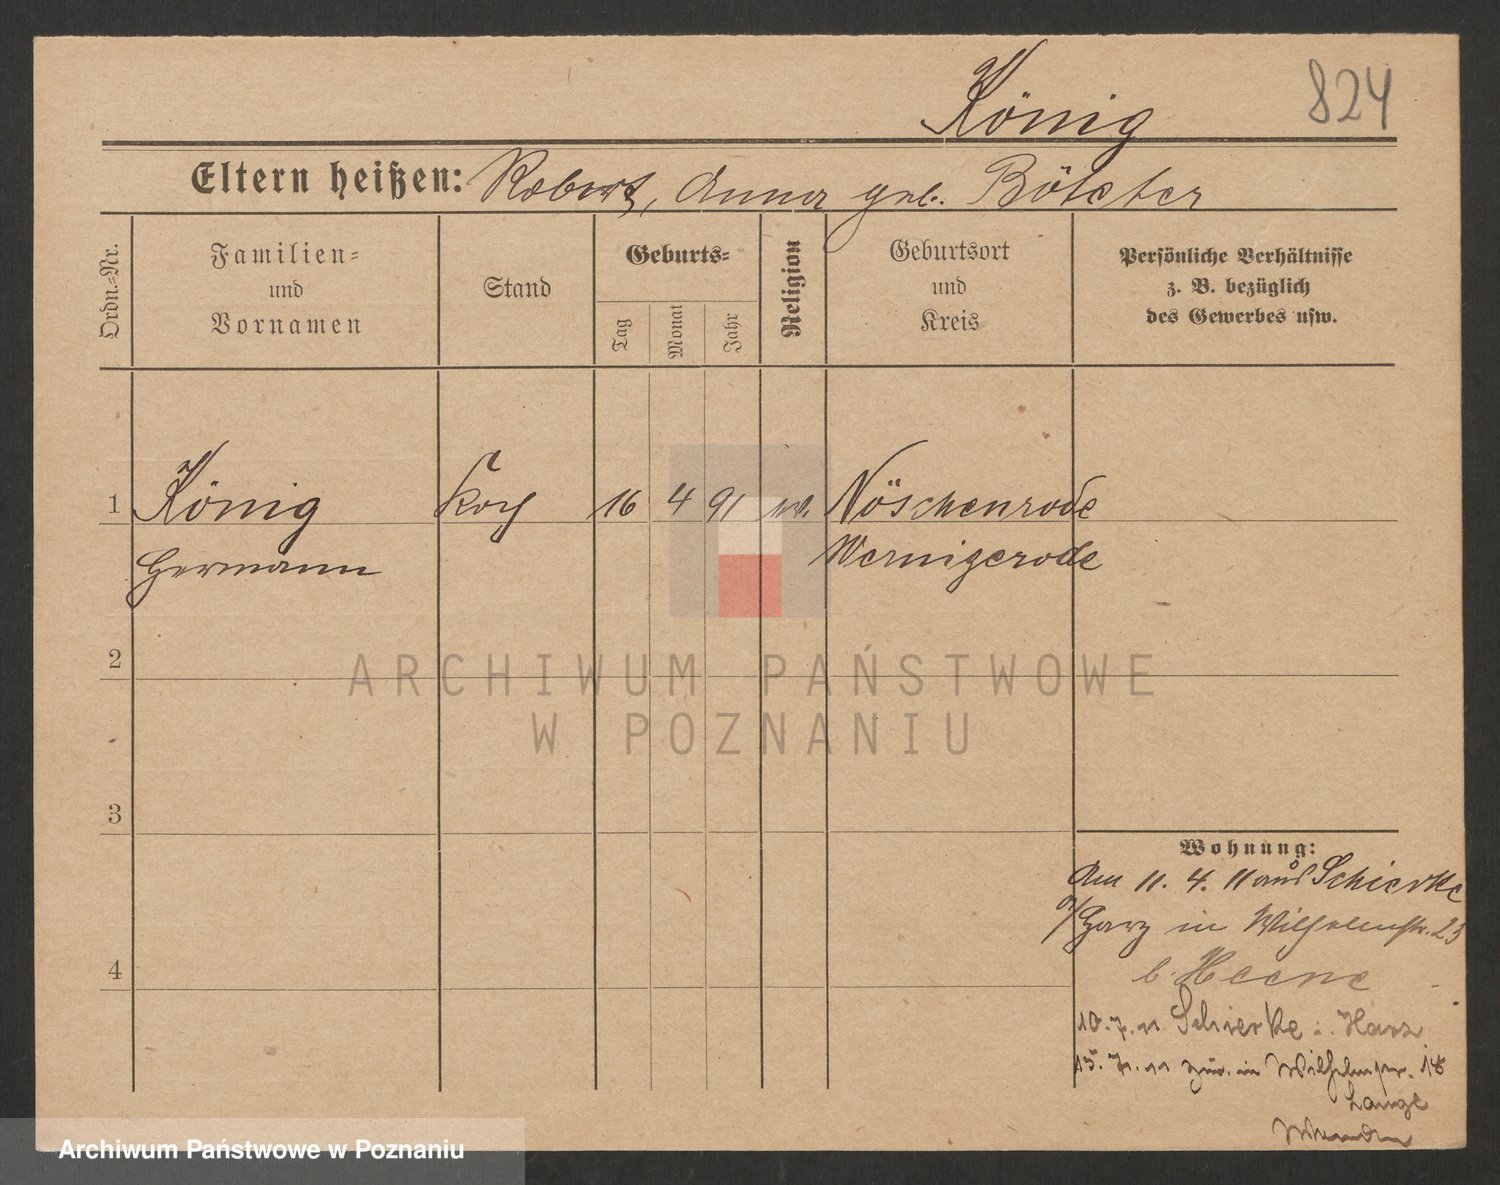 König 824
Eltern heißen: Robert, Anna geb. Bötcher
Ordn.-Nr.
Familien-
und
Vornamen
Stand
Geburts-
Tag
Monat
Jahr
Religion
Geburtsort
und
Kreis
Persönliche Verhältnisse
z. B. bezüglich
des Gewerbes usw.
1 König Koch 16 4 91 Nöschenrode
Hermann Wernigerode
2
3
4
Wohnung:
Am 11. 4. 11 aus Schierke
a/Harz in Wilhelmstr. 23
b. Heene
10.7.11 Schierke i. Harz
15.7.11 zur. in Wilhelmstr. 18
Lange
ARCHIWUM PAŃSTWOWE
W POZNANIU
Archiwum Państwowe w Poznaniu